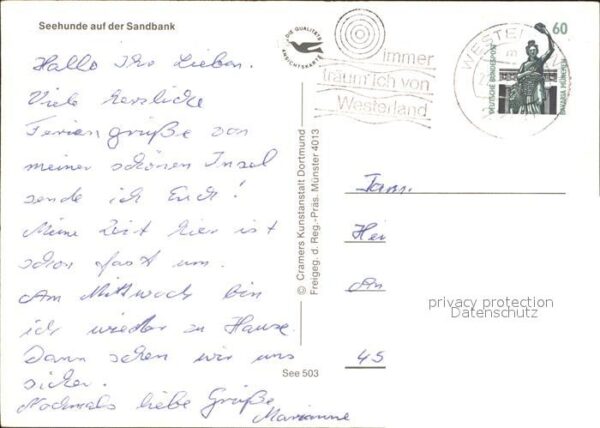 Seehunde auf der Sandbank
Hallo Ihr Lieben.
Viele herzliche
Feriengrüße von
meiner schönen Insel
sende ich Euch!
Meine Zeit hier ist
schon fast um.
Am Mittwoch bin
ich wieder zu Hause.
Dann sehen wir uns
sicher.
Nochmals liebe Grüße
Marianne
DIE QUALITÄTS
ANSICHTSKARTE
immer
träum' ich von
Westerland
WESTERL
60
DEUTSCHE BUNDESPOST
BAVARIA MÜNCHEN
© Cramers Kunstanstalt Dortmund
Freigeg. d. Reg.-Präs. Münster 4013
See 503
Fam.
Hei
An
45
privacy protection
Datenschutz